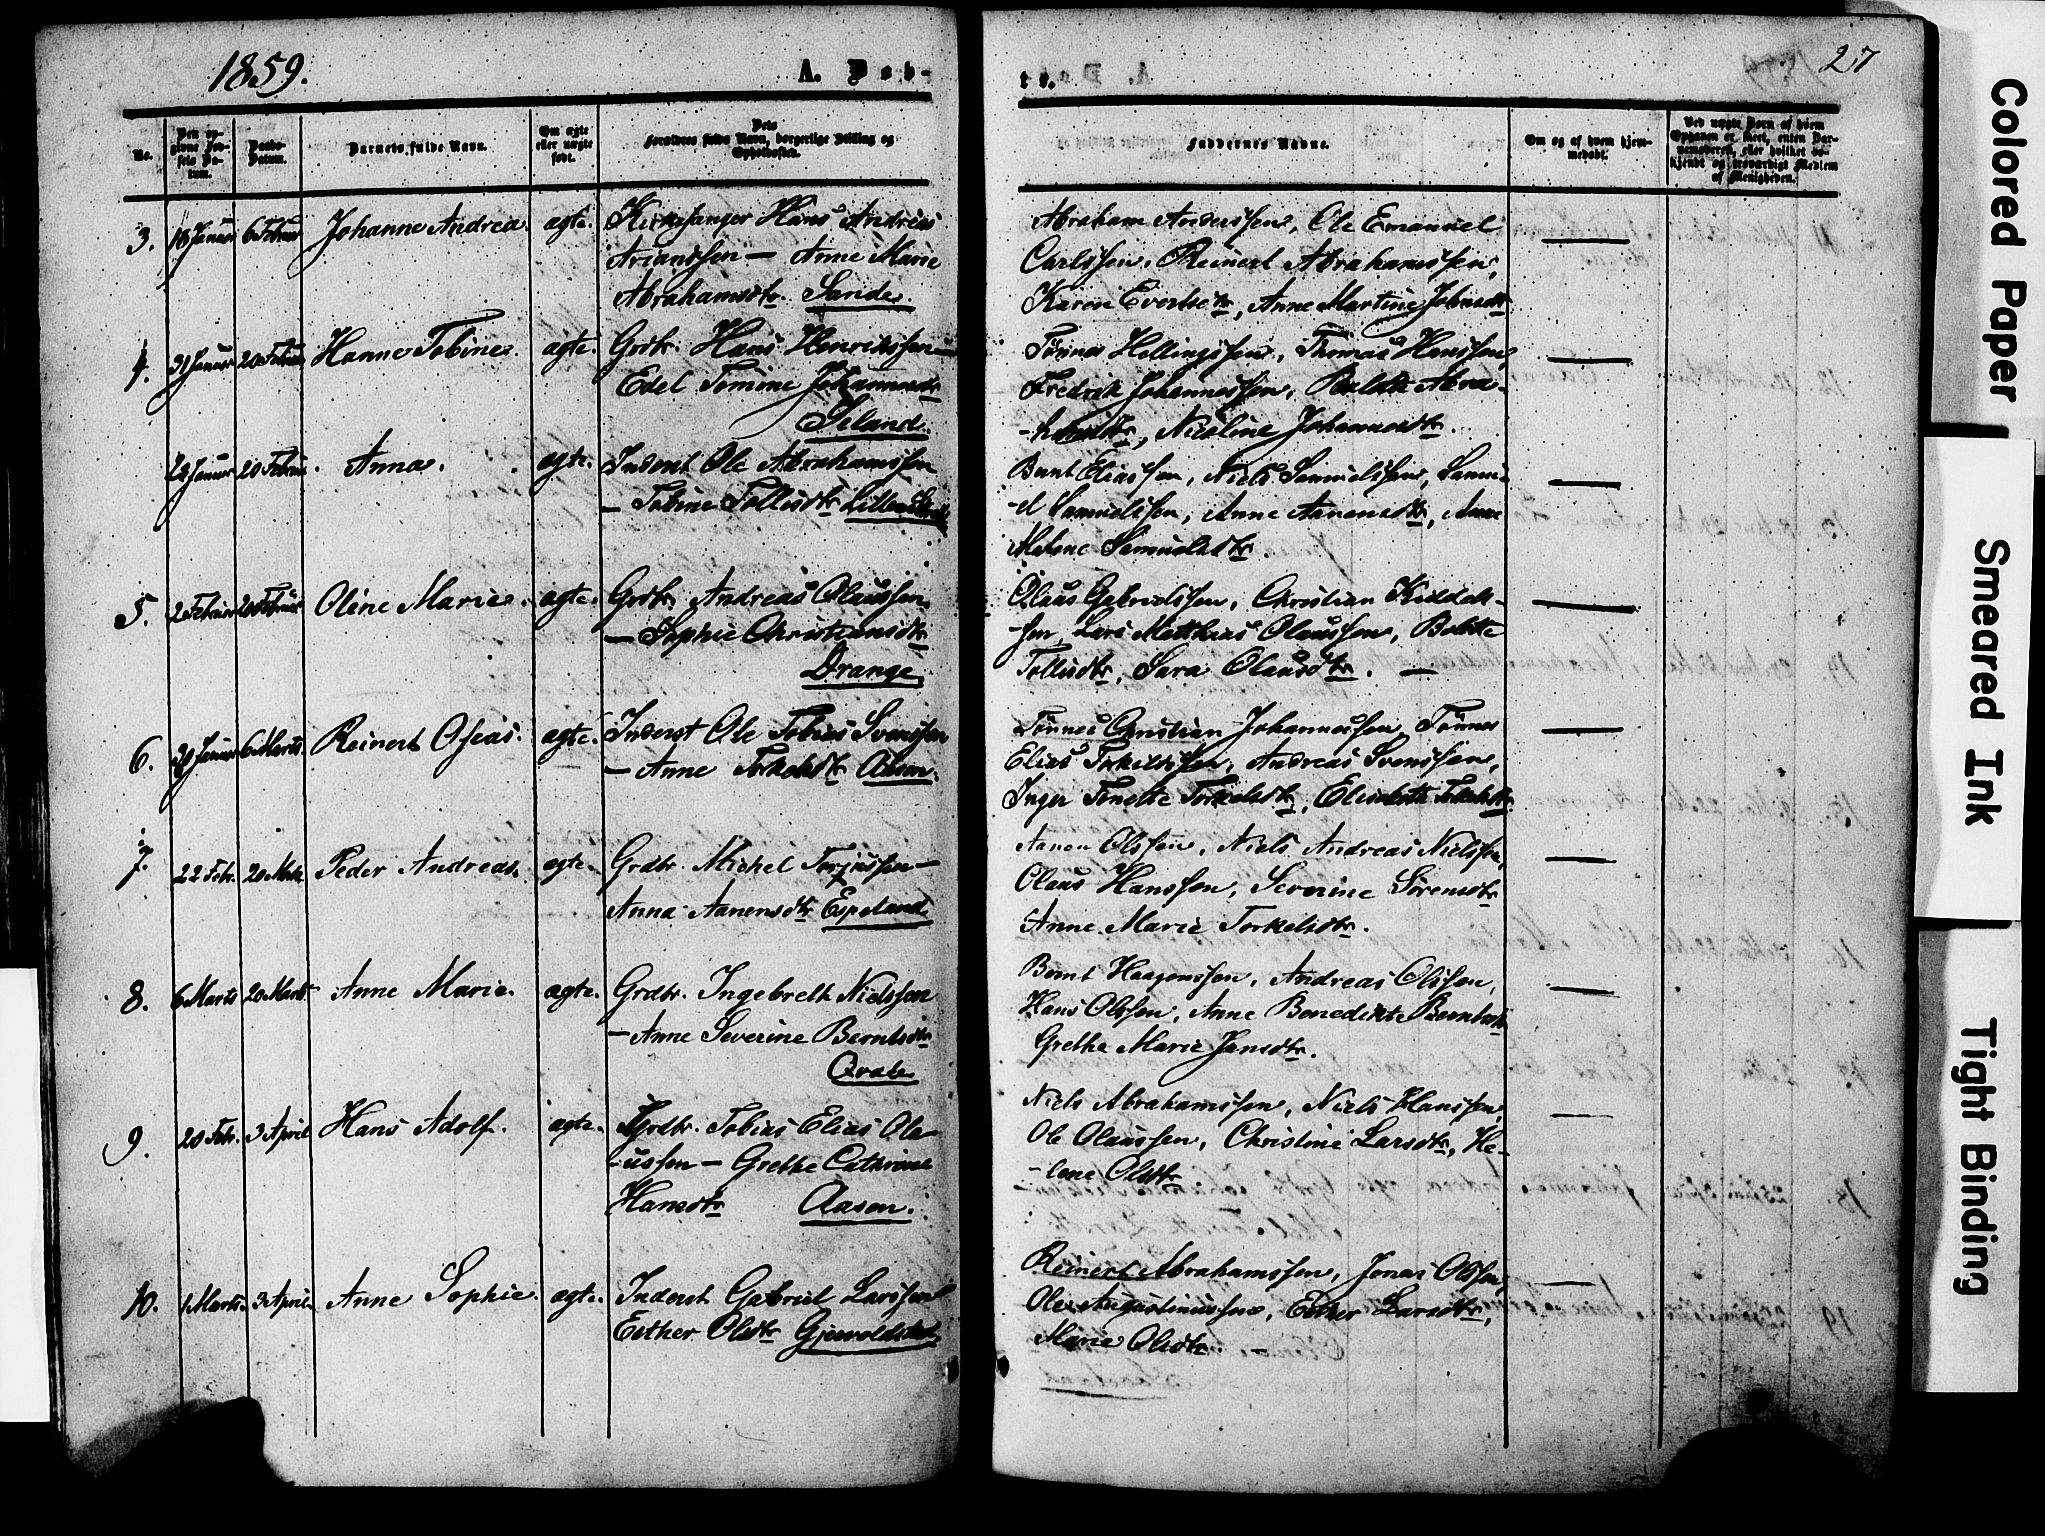 1859.
A. Døb-
te.
27
No.
Den op-
givne Fød-
sels Da-
tum.
Daabs-
Datum.
Barnets fulde Navn.
Om ægte
eller uægte
født.
Dets
Forældres fulde Navn, borgerlige Stilling og
Opholdssted.
Faddernes Navne.
Om og af hvem hjem-
medøbt.
Ved uægte Børn af hvem
Opgaven er skeet, enten Bar-
nemoderen, eller hvilket be-
kjendt og troværdigt Medlem
af Menigheden.
3. 18 Januar 6 Februar Johanne Andrea. ægte. Kirkesanger Hans Andreas
Arianssen — Anne Marie
Abrahamsdtr. Sande.
Abraham Anderssen, Ole Emanuel
Carlssen, Reinert Abrahamssen,
Karen Evertsdtr, Anne Martine Johnsdtr
4. 31 Januar 20 Februar Hanne Tobine. ægte. Grdbr. Hans Henrikssen —
Edel Tomine Johannesdtr
Seland.
Tønnes Hellingssen, Thomas Hanssen,
Fredrik Johannessen, Abra-
-hamsdtr, Nicoline Johannesdtr.
28 Januar 20 Februar. Anna. ægte. Inderst Ole Abrahamssen
— Tobine Tollisdtr Lille
Bernt Eliassen, Niels Samuelssen, Samu-
-el Samuelssen, Anne Aanensdtr, Anne
Malene Samuelsdtr.
5. 2 Februar 20 Februar Oline Marie. ægte. Grdbr. Andreas Olaussen
— Sophie Christiansdtr
Drange.
Olaus Gabrielssen, Christian Kiddels-
-sen, Lars Matthias Olaussen, Bolette
Tollisdtr, Sara Olausdtr. —
6. 30 Januar 6 Marts. Reinert Oseas. ægte. Inderst Ole Tobias Svenssen
— Anne Torkelsdtr Aasen.
Tønnes Christian Johannessen, Tønnes
Elias Torkildssen, Andreas Svenssen,
Inger Tonette Torkelsdtr, Elisabeth Torkelsdtr.
7. 22 Febr. 20 Marts Peder Andreas. ægte. Grdbr. Michel Torjussen —
Anna Aanensdtr Espeland.
Aanen Olssen, Niels Andreas Nielssen,
Olaus Hanssen, Severine Sørensdtr
Anne Marie Torkelsdtr.
8. 6 Marts 20 Marts Anne Marie. ægte. Grdbr. Ingebreth Nielssen
— Anne Severine Berntsdtr
Qvale.
Bernt Haagenssen, Andreas Olssen,
Hans Olssen, Anne Benedikte Berntsdtr
Grethe Marie Jansdtr.
9. 20 Febr. 3 April Hans Adolf. ægte. Grdbr. Tobias Elias Ola-
-ussen — Grethe Cathrine
Hansdtr Aasen.
Niels Abrahamssen, Niels Hanssen,
Ole Olaussen, Christine Larsdtr, He-
-lene Olsdtr.
10. 1 Marts. 3 April. Anne Sophie. ægte. Inderst Gabriel Larssen
Esther Olsdtr Gjervoldstad
Reinert Abrahamssen, Jonas Olssen,
Ole Augustinussen, Esther Larsdtr,
Marie Olsdtr. —
Colored Paper
Smeared Ink
Tight Binding